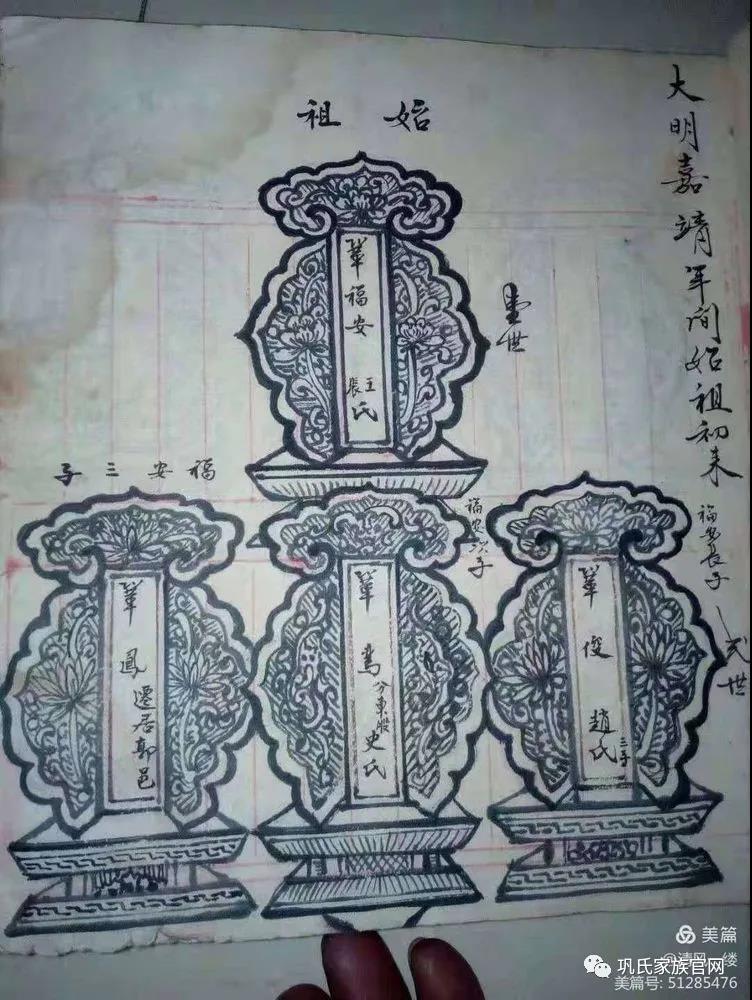 大明嘉靖年间始祖初来
始祖
壹世
鞏福安 王張氏
福安長子
弍世
鞏俊 趙氏 三子
福安次子
鞏 分東股 史氏
福安三子
鞏鳳 遷居郭邑
美篇
巩氏家族官网
美篇号: 51285476